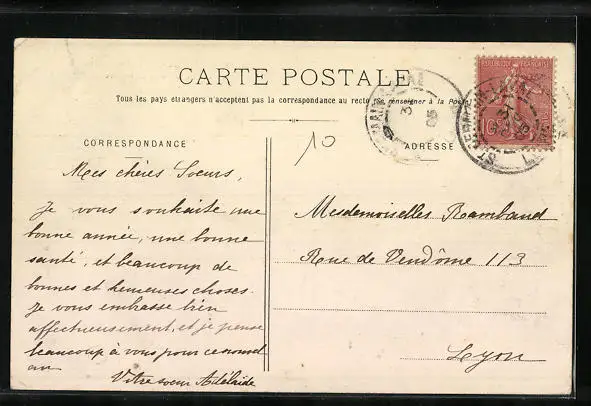 CARTE POSTALE
Tous les pays étrangers n'acceptent pas la correspondance au recto (se renseigner à la Poste)
RÉPUBLIQUE FRANÇAISE
10
CORRESPONDANCE
ADRESSE
Mes chères Soeurs,
Je vous souhaite une
bonne année, une bonne
santé, et beaucoup de
bonnes et heureuses choses.
Je vous embrasse bien
affectueusement, et je pense
beaucoup à vous pour ce nouvel
an
Votre soeur Adélaïde
Mesdemoiselles Rambaud
Rue de Vendôme 113
Lyon